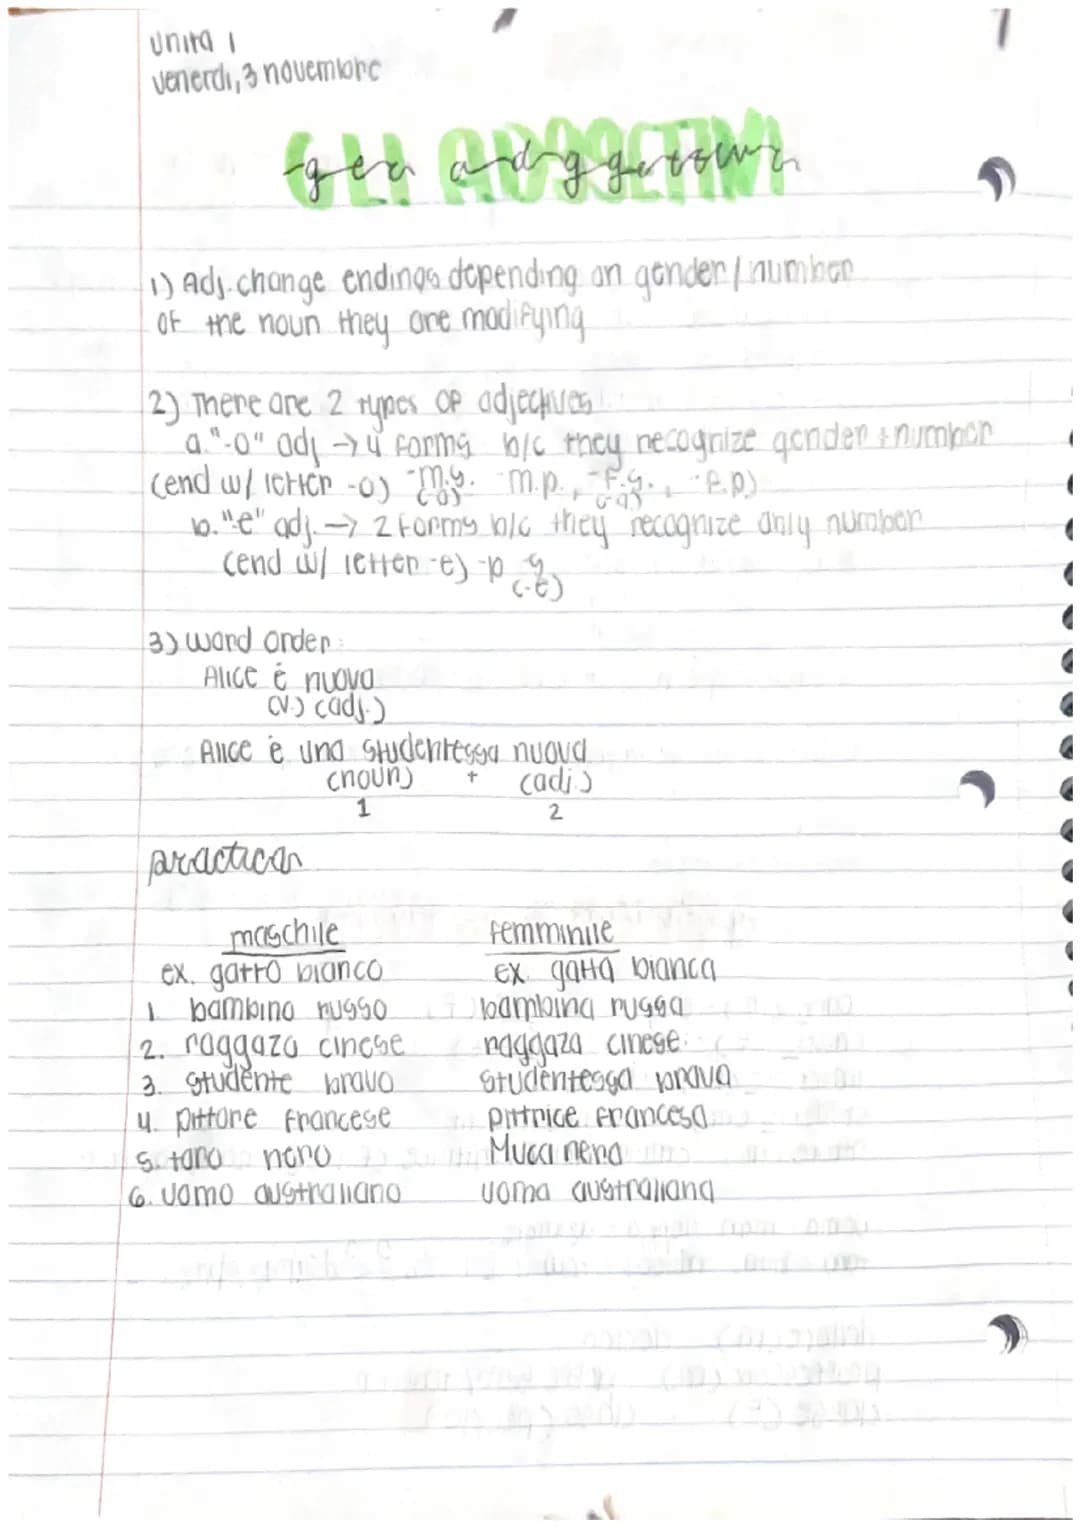 Unità 1
Venerdì, 3 novembre
GLI AGGETTIVI
1) Adj. change endings depending on gender/number
of the noun they are modifying
2) There are 2 types of adjectives:
a. "-o" adj → 4 forms b/c they recognize gender + number
(end w/ letter -o) -m.s. -m.p., -f.s., -f.p)
(-o) (-a)
b. "e" adj. → 2 forms b/c they recognize only number
(end w/ letter -e) -p s
(-e)
3) word order:
Alice è nuova
(v.) (adj.)
Alice è una studentessa nuova
(noun) + (adj.)
1 2
practica
maschile femminile
ex. gatto bianco ex. gatta bianca
1. bambino russo bambina russa
2. raggazo cinese raggaza cinese.
3. studente bravo studentessa brava
4. pittore francese pittrice francesa
5. toro nero Mucca nera
6. Uomo australiano uoma australiana